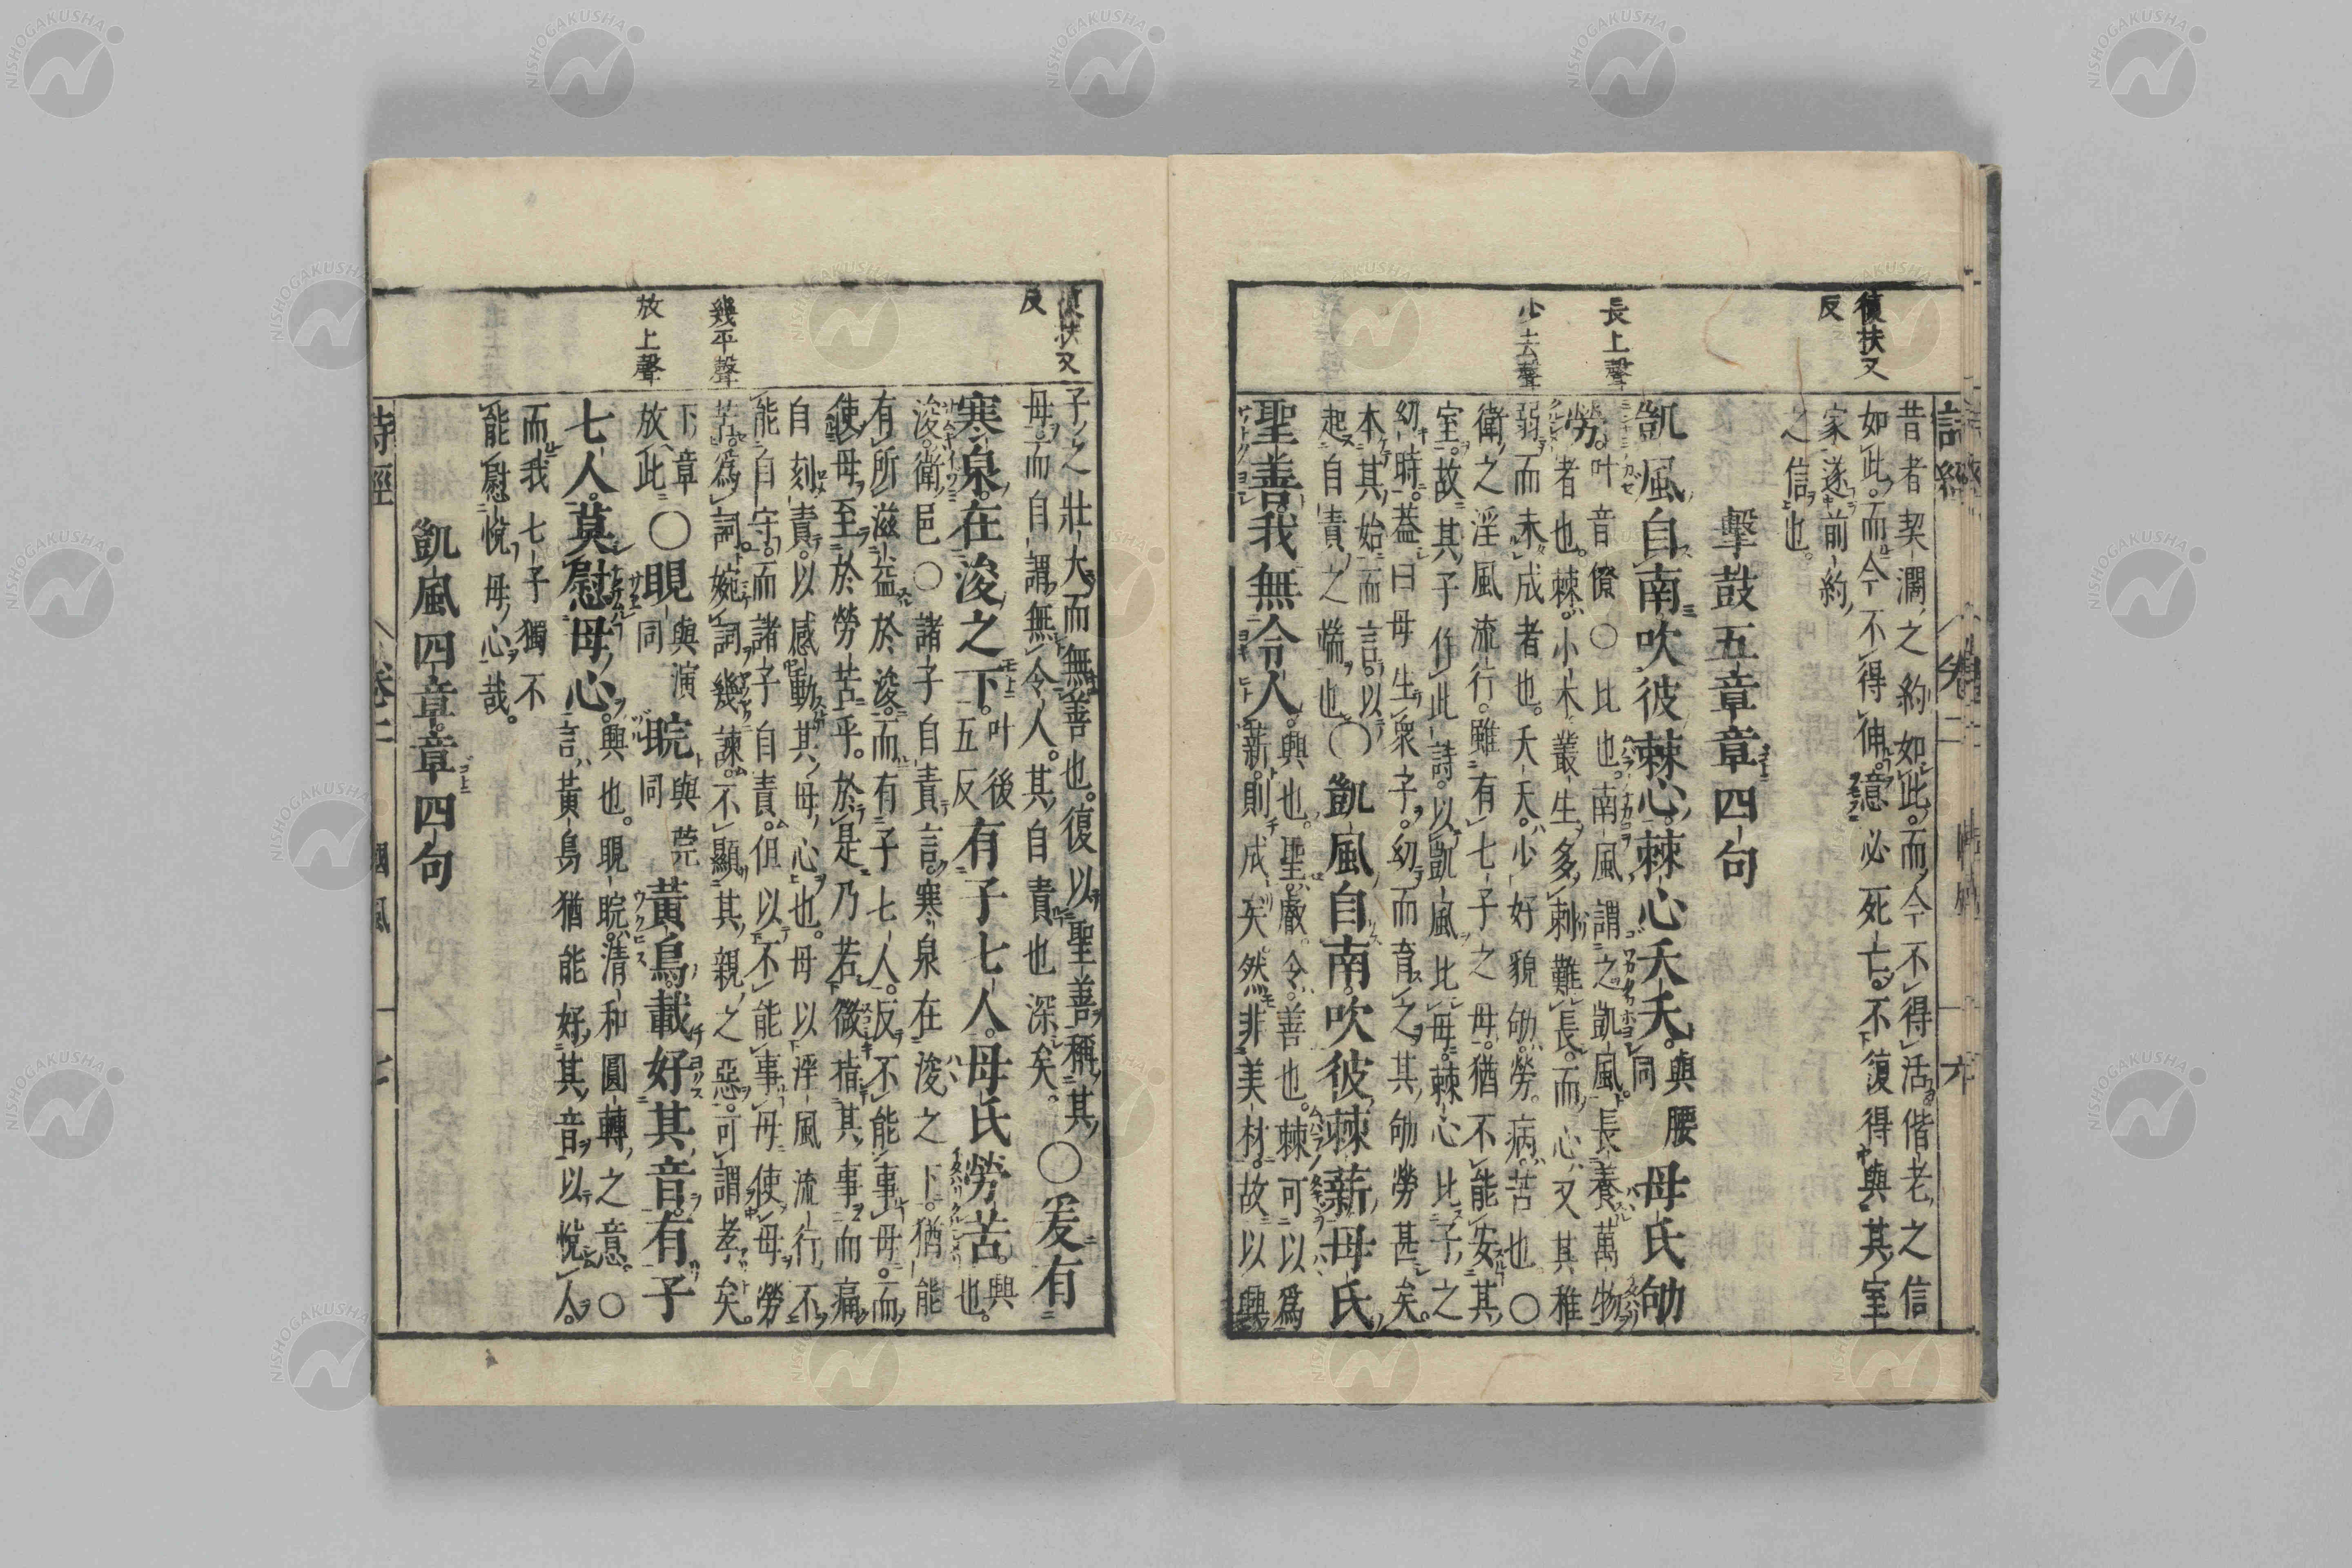 詩經 卷二
復扶又
反
長上聲
少去聲
昔者契濶之約如此而今不得活偕老之信
如此而今不得伸意必死亡不復得與其室
家遂前約
之信也
擊鼓五章章四句
凱風自南吹彼棘心棘心夭夭與腰同母氏劬
勞叶音僚○比也南風謂之凱風長養萬物
者也棘小木叢生多刺難長而心又其稚
弱而未成者也夭夭少好貌劬勞病苦也○
衛之淫風流行雖有七子之母猶不能安其
室故其子作此詩以凱風比母棘心比子之
幼時蓋曰母生衆子幼而育之其劬勞甚矣
本其始而言以
起自責之端也○凱風自南吹彼棘薪母氏
聖善我無令人興也聖叡令善也棘可以爲
薪則成矣然非美材故以興
復扶又
反
幾平聲
放上聲
子之壯大而無善也復以聖善稱其
母而自謂無令人其自責也深矣○爰有
寒泉在浚之下叶後五反有子七人母氏勞苦興也
浚衛邑○諸子自責言寒泉在浚之下猶能
有所滋益於浚而有子七人反不能事母而
使母至於勞苦乎於是乃若微指其事而痛
自刻責以感動其母心也母以淫風流行不
能自守而諸子自責但以不能事母使母勞
苦爲詞婉詞幾諫不顯其親之惡可謂孝矣
下章
放此○睍與演同睆與莞同黃鳥載好其音有子
七人莫慰母心興也睍睆淸和圓轉之意○
言黃鳥猶能好其音以悅人
而我七子獨不
能慰悅母心哉
凱風四章章四句
詩經 卷二 國風 十七